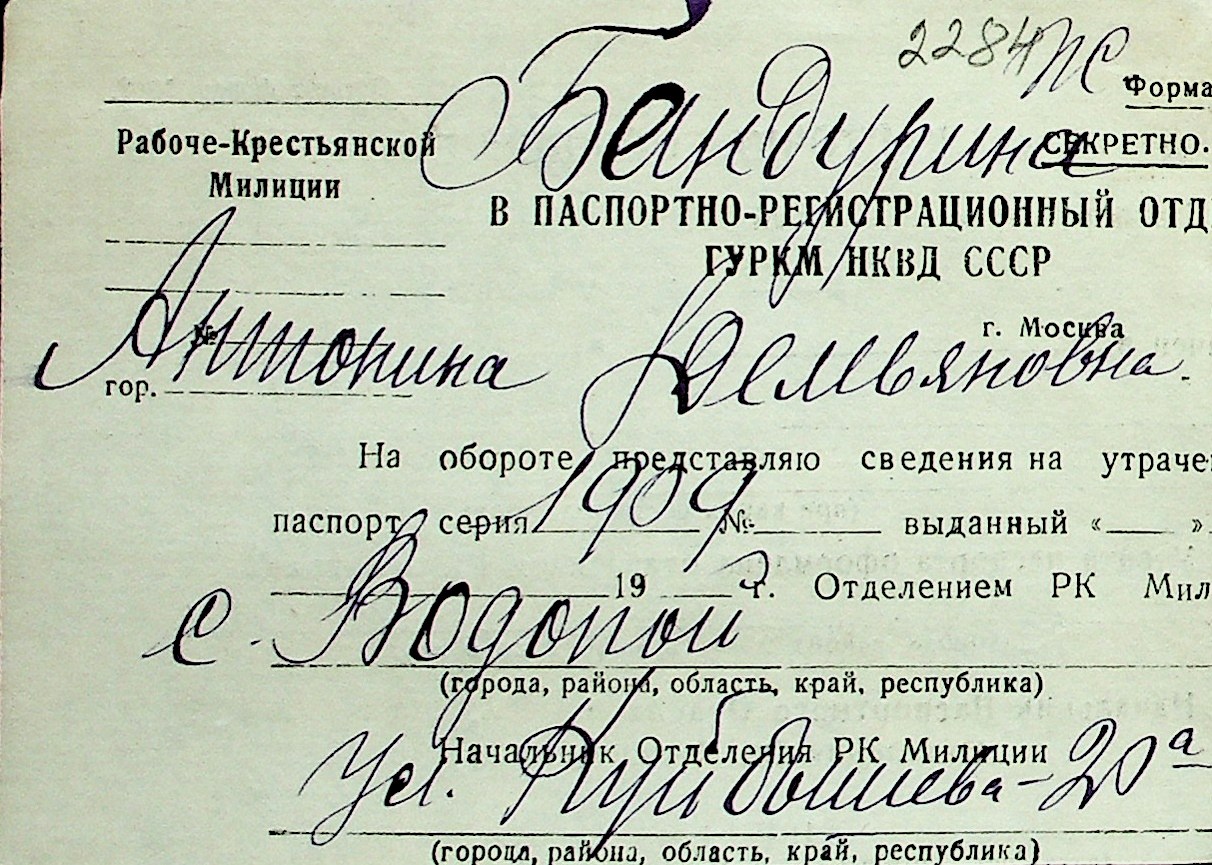 2284 ж
Форма
Бандурина
Рабоче-Крестьянской
Милиции
СЕКРЕТНО.
В ПАСПОРТНО-РЕГИСТРАЦИОННЫЙ ОТД
ГУРКМ НКВД СССР
г. Москва
Антонина Демьяновна.
№
гор.
На обороте представляю сведения на утраче
1909
паспорт серия № выданный « »
19 г. Отделением РК Мил
с. Водопой
(города, района, область, край, республика)
Начальник Отделения РК Милиции
ул. Куйбышева-20а
(города, района, область, край, республика)